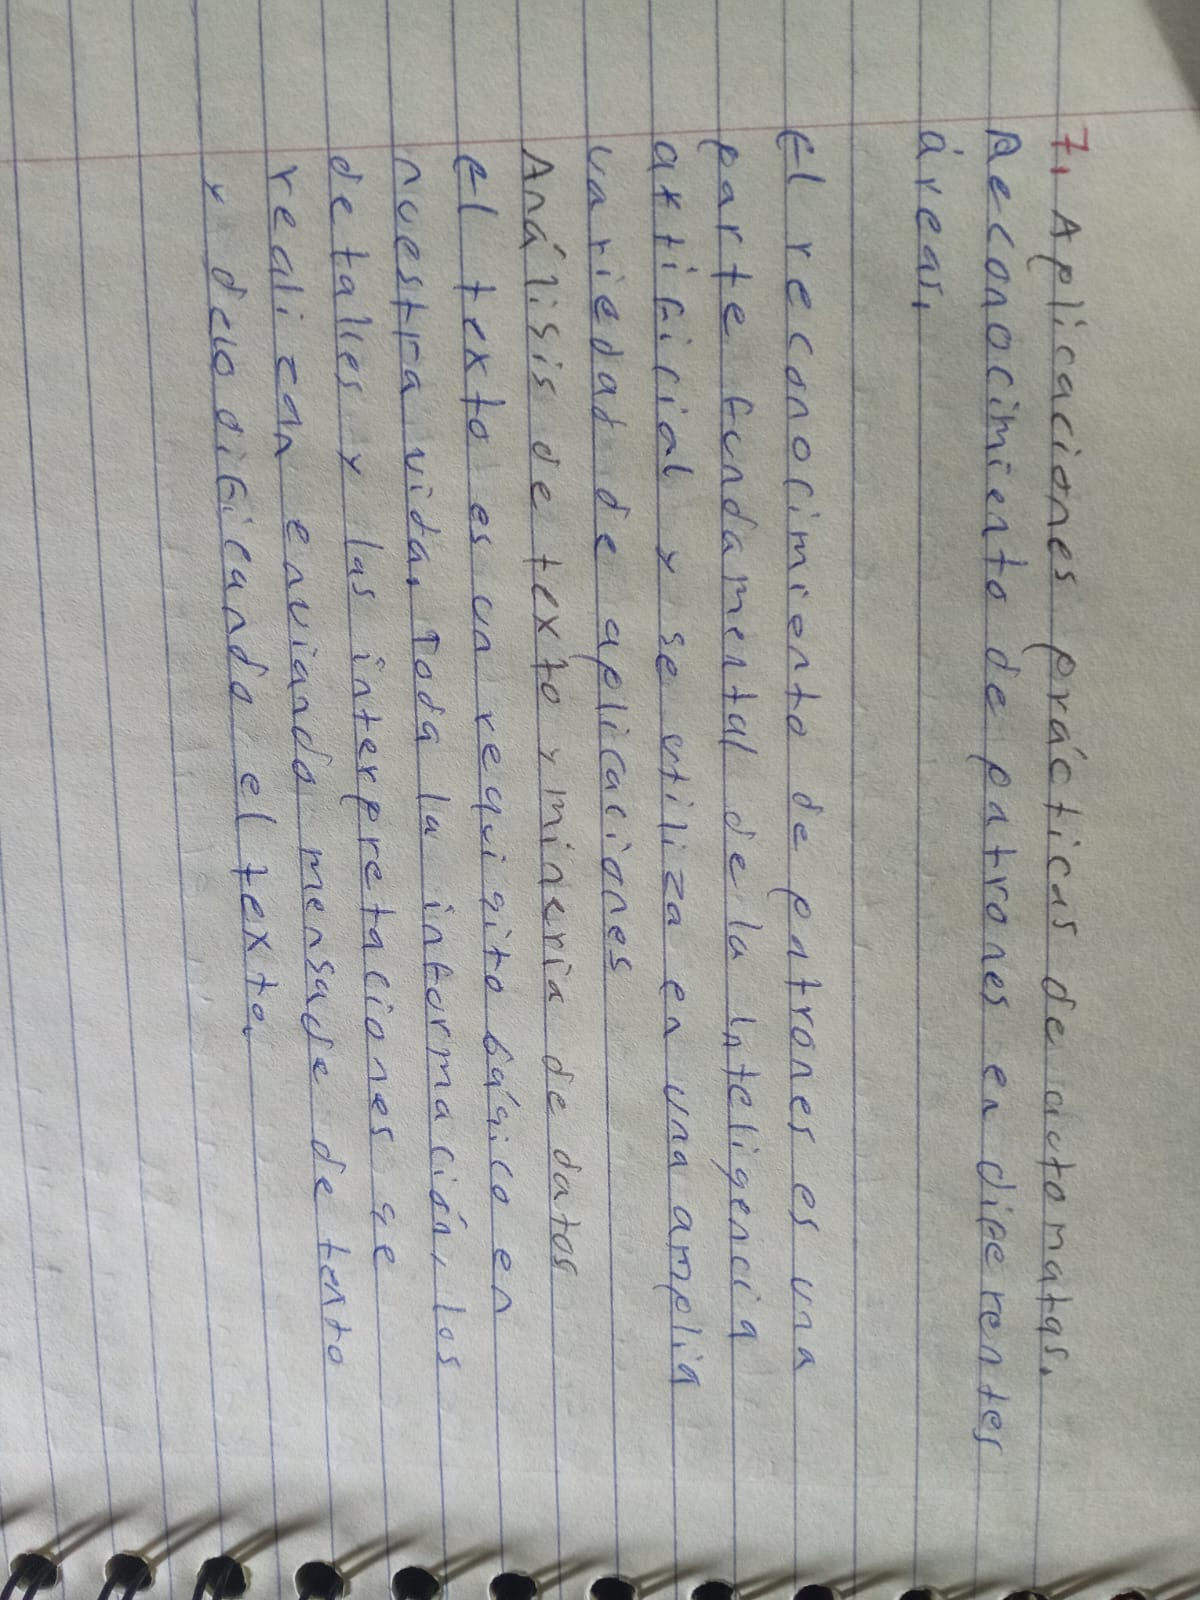 7. Aplicaciones prácticas de automatas.
Reconocimiento de patrones en diferentes
áreas.
El reconocimiento de patrones es una
parte fundamental de la inteligencia
artificial y se utiliza en una amplia
variedad de aplicaciones
Análisis de texto y minería de datos
el texto es un requisito básico en
nuestra vida. Toda la información, los
detalles y las interpretaciones se
realizan enviando mensade de tento
y decodificando el texto.